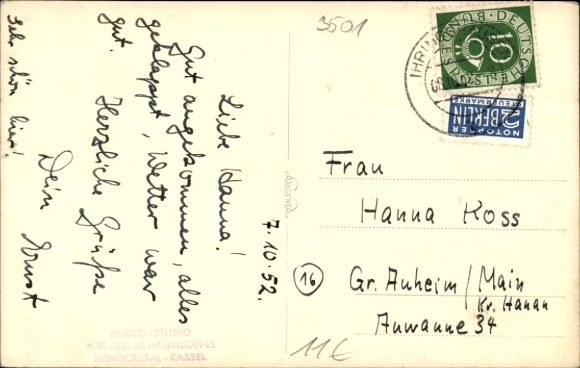 3501
7.10.52.
Liebe Hanna!
Gut angekommen, alles
geklappt, Wetter war
gut.
Herzliche Grüße
Dein Ernst
Sehr schön hier!
PHOTO-STUDIO
MÜLLER-SCHAUMLÖFFEL
SCHOCKETAL-KASSEL
ARGENTA
DEUTSCHE BUNDESPOST
10
NOTOPFER
2 BERLIN
STEUERMARKE
Frau
Hanna Koss
16
Gr. Auheim/Main
Kr. Hanau
Anwanne 34
11€